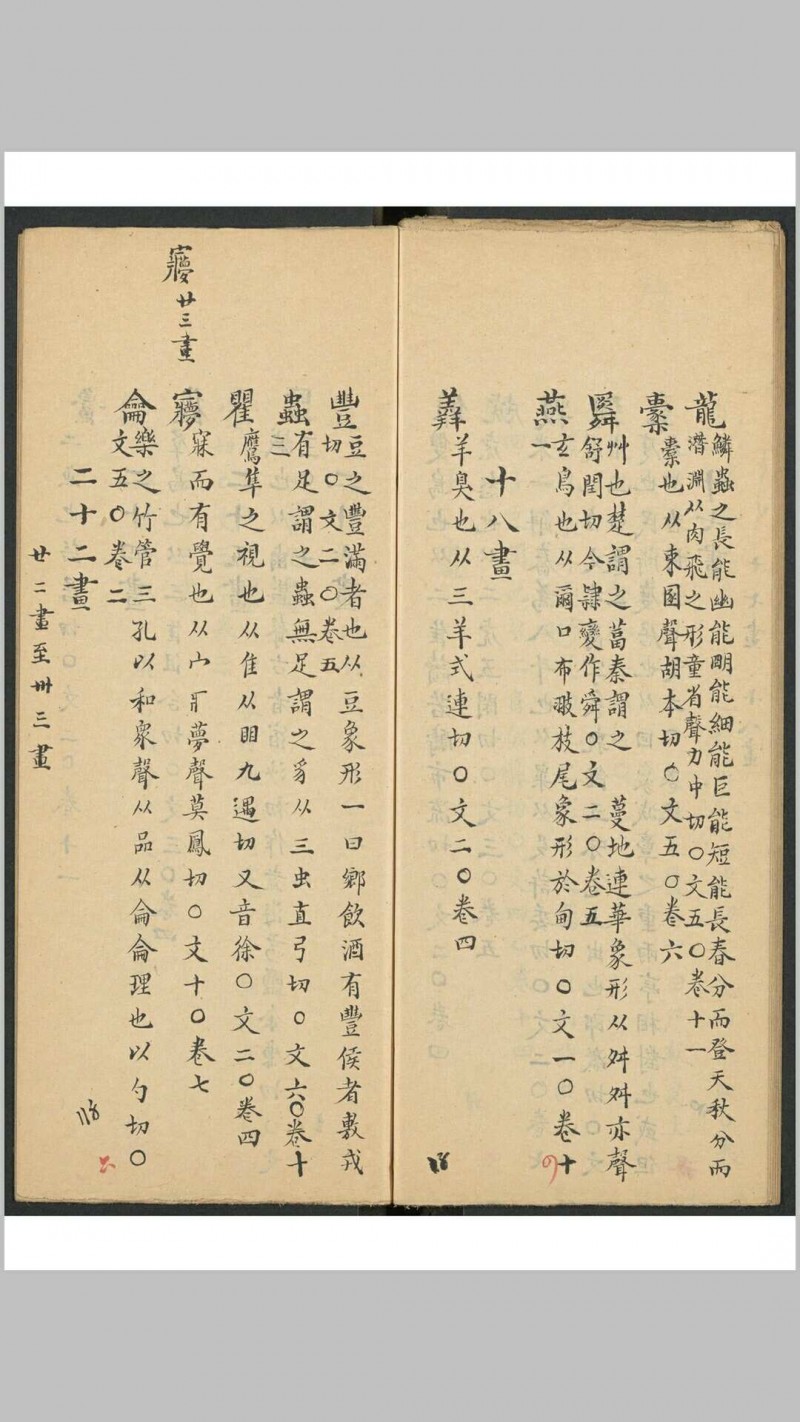 龍鱗蟲之長能幽能朙能細能巨能短能長春分而登天秋分而
潛淵从肉飛之形童省聲力中切○文五○卷十一
㯻橐也从束圂聲胡本切○文五○卷六
䑞艸也楚謂之葍秦謂之 蔓地連華象形从舛舛亦聲
舒閏切今隸變作舜○文二○卷五
燕玄鳥也从𠃬口布翄枝尾象形於甸切○文一○卷十
一
十八畫
羴羊臭也从三羊式連切○文二○卷四
豐豆之豐滿者也从豆象形一曰鄉飲酒有豐侯者敷戎
切○文二○卷五
蟲有足謂之蟲無足謂之豸从三虫直弓切○文六○卷十
三
瞿鷹隼之視也从隹从䀠九遇切又音徐○文二○卷四
㝱廿三畫
㝱寐而有覺也从宀疒夢聲莫鳳切○文十○卷七
龠樂之竹管三孔以和眾聲从品从侖侖理也以勺切○
文五○卷二
二十二畫
廿二畫至卅三畫
118